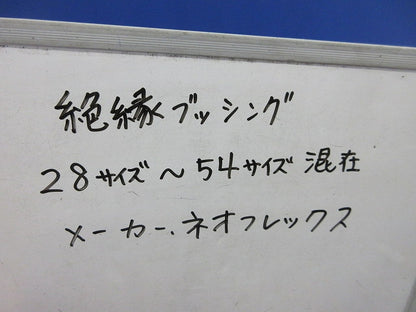 絶縁ブッシング
28サイズ～54サイズ混在
メーカー.ネオフレックス